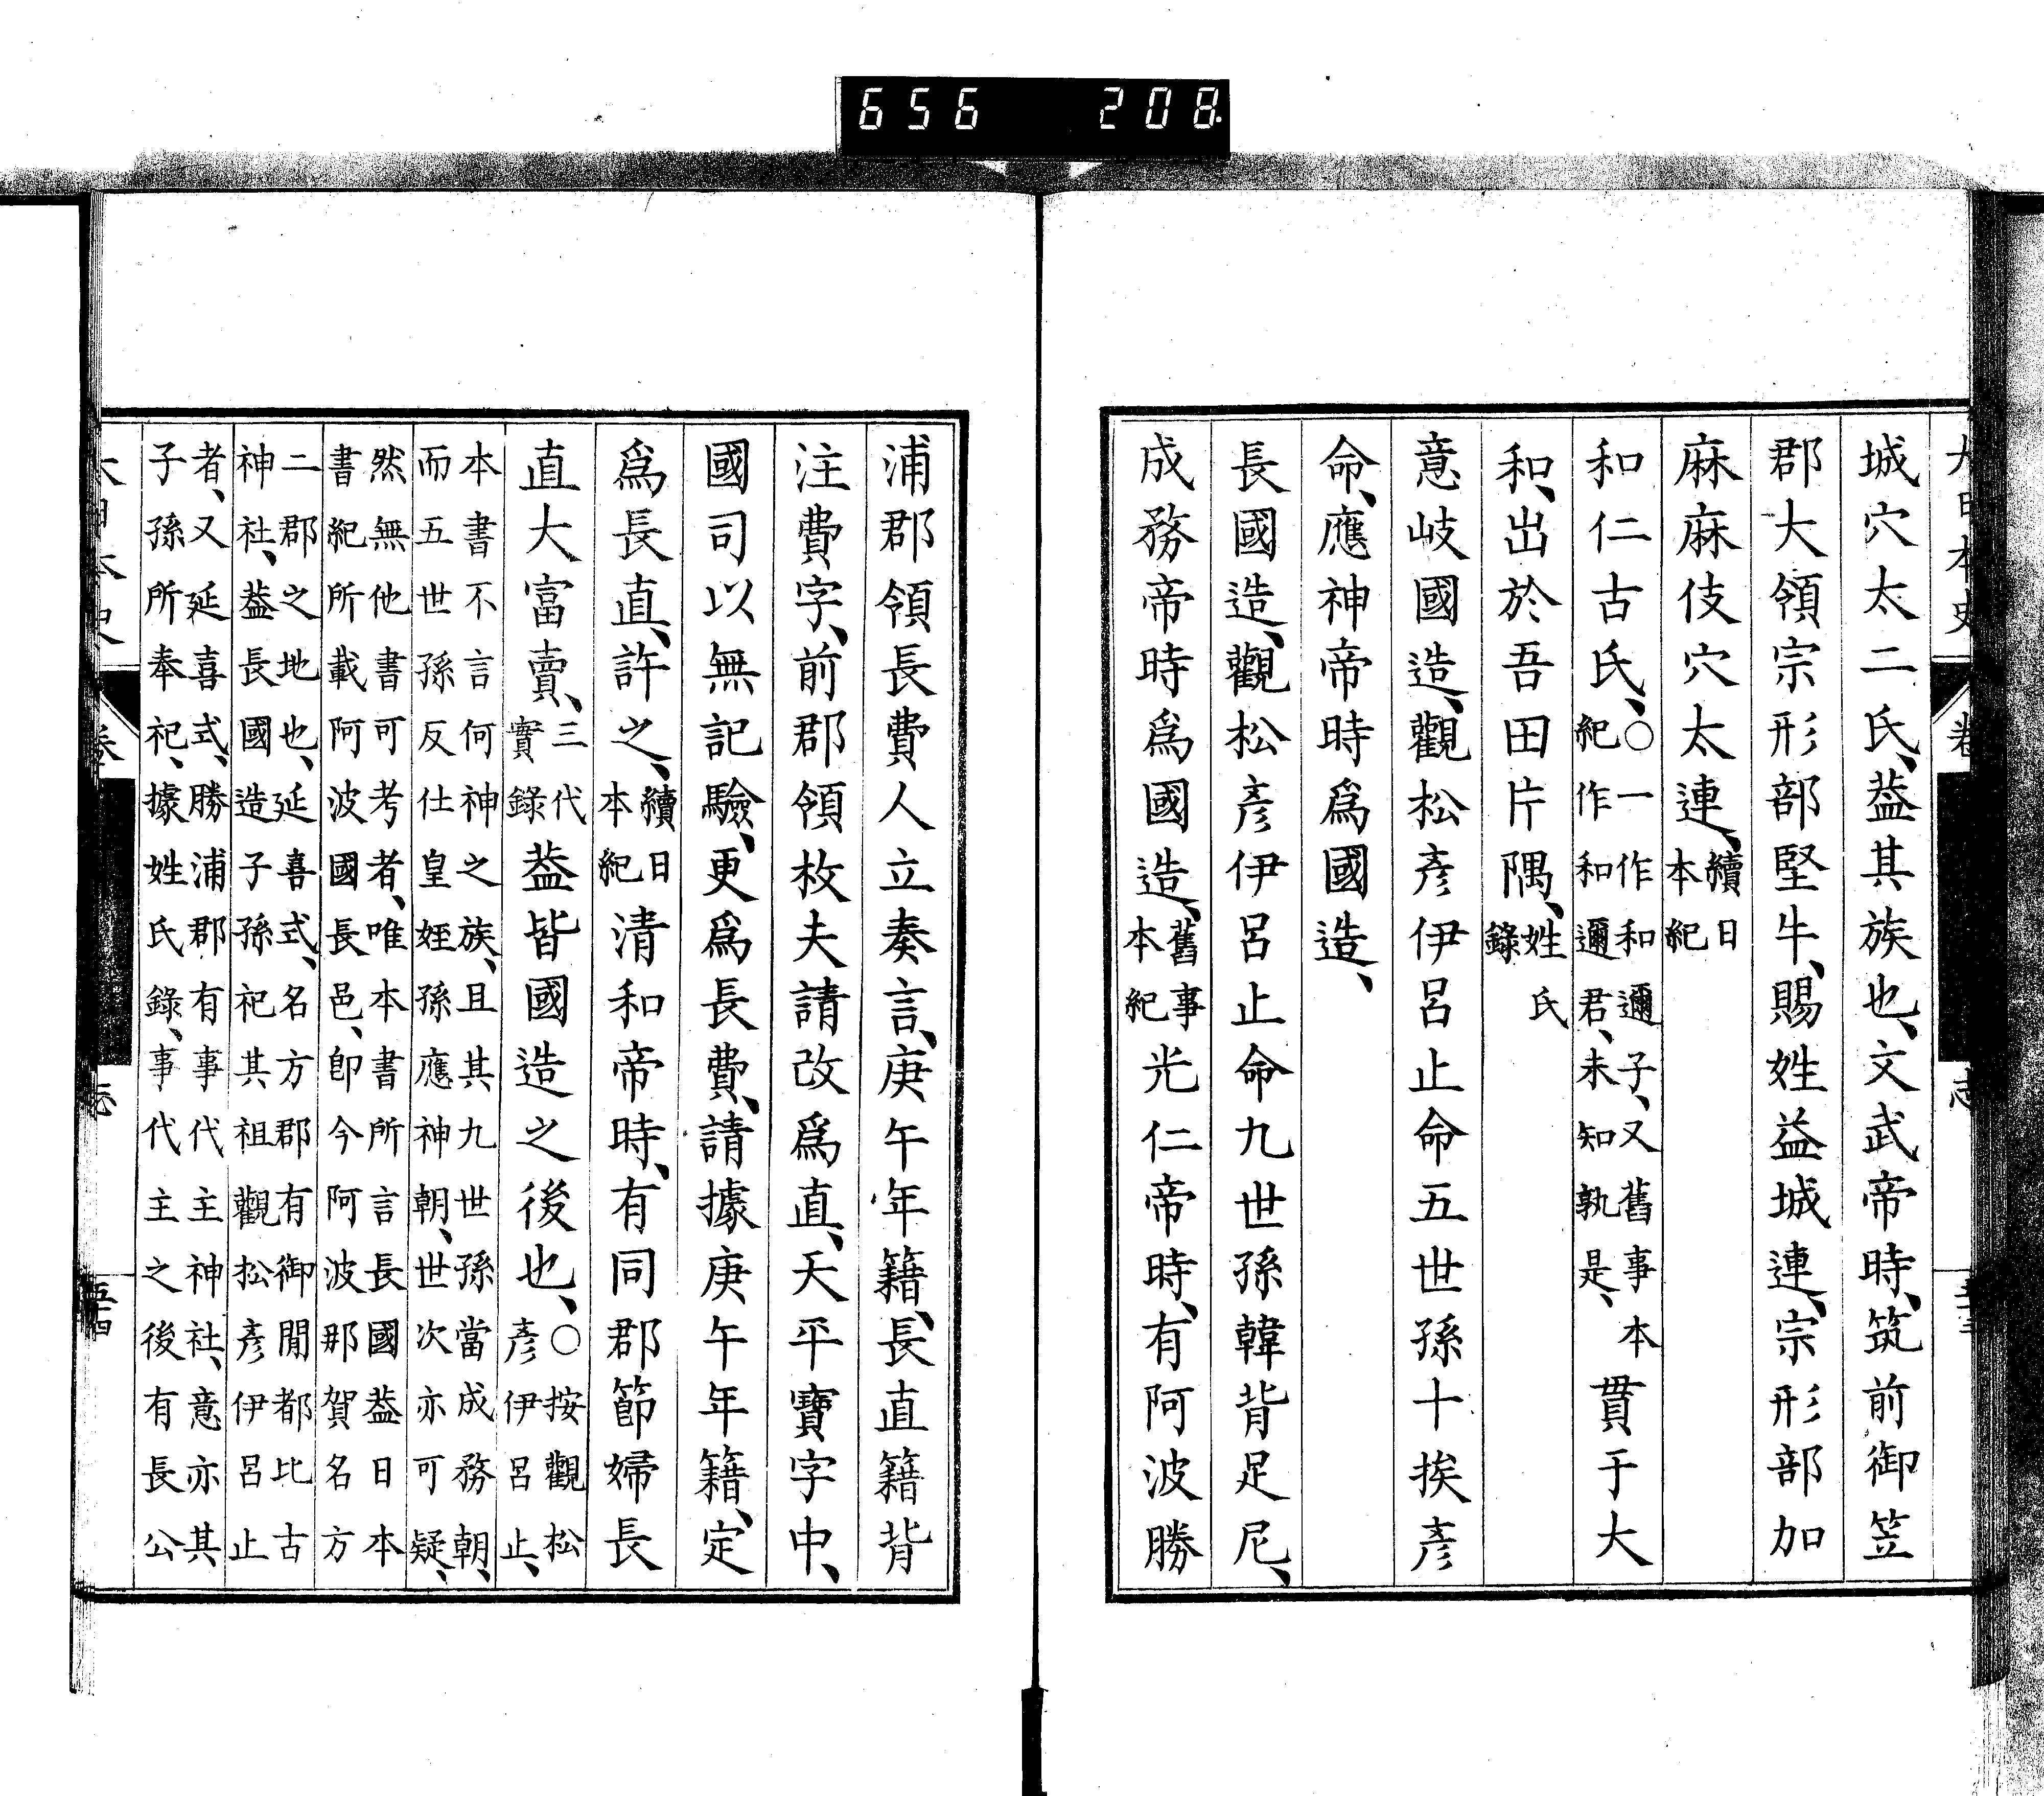 656 208
城穴太二氏、葢其族也、文武帝時、筑前御笠
郡大領宗形部堅牛、賜姓益城連、宗形部加
麻麻伎穴太連、續日本紀
和仁古氏、○一作和邇子、又舊事本紀作和邇君、未知孰是、貫于大
和、出於吾田片隅、姓氏錄
意岐國造、觀松彥伊呂止命五世孫十挨彥
命、應神帝時爲國造、
長國造、觀松彥伊呂止命九世孫韓背足尼、
成務帝時爲國造、舊事本紀光仁帝時、有阿波勝
浦郡領長費人立奏言、庚午年籍、長直籍背
注費字、前郡領枚夫請改爲直、天平寶字中、
國司以無記驗、更爲長費、請據庚午年籍、定
爲長直、許之、續日本紀淸和帝時、有同郡節婦長
直大富賣、三代實錄葢皆國造之後也、○按觀松彥伊呂止、
本書不言何神之族、且其九世孫當成務朝、
而五世孫反仕皇姪孫應神朝、世次亦可疑、
然無他書可考者、唯本書所言長國葢日本
書紀所載阿波國長邑、卽今阿波那賀名方
二郡之地也、延喜式、名方郡有御間都比古
神社、葢長國造子孫祀其祖觀松彥伊呂止
者、又延喜式、勝浦郡有事代主神社、意亦其
子孫所奉祀、據姓氏錄、事代主之後有長公
大日本史
志